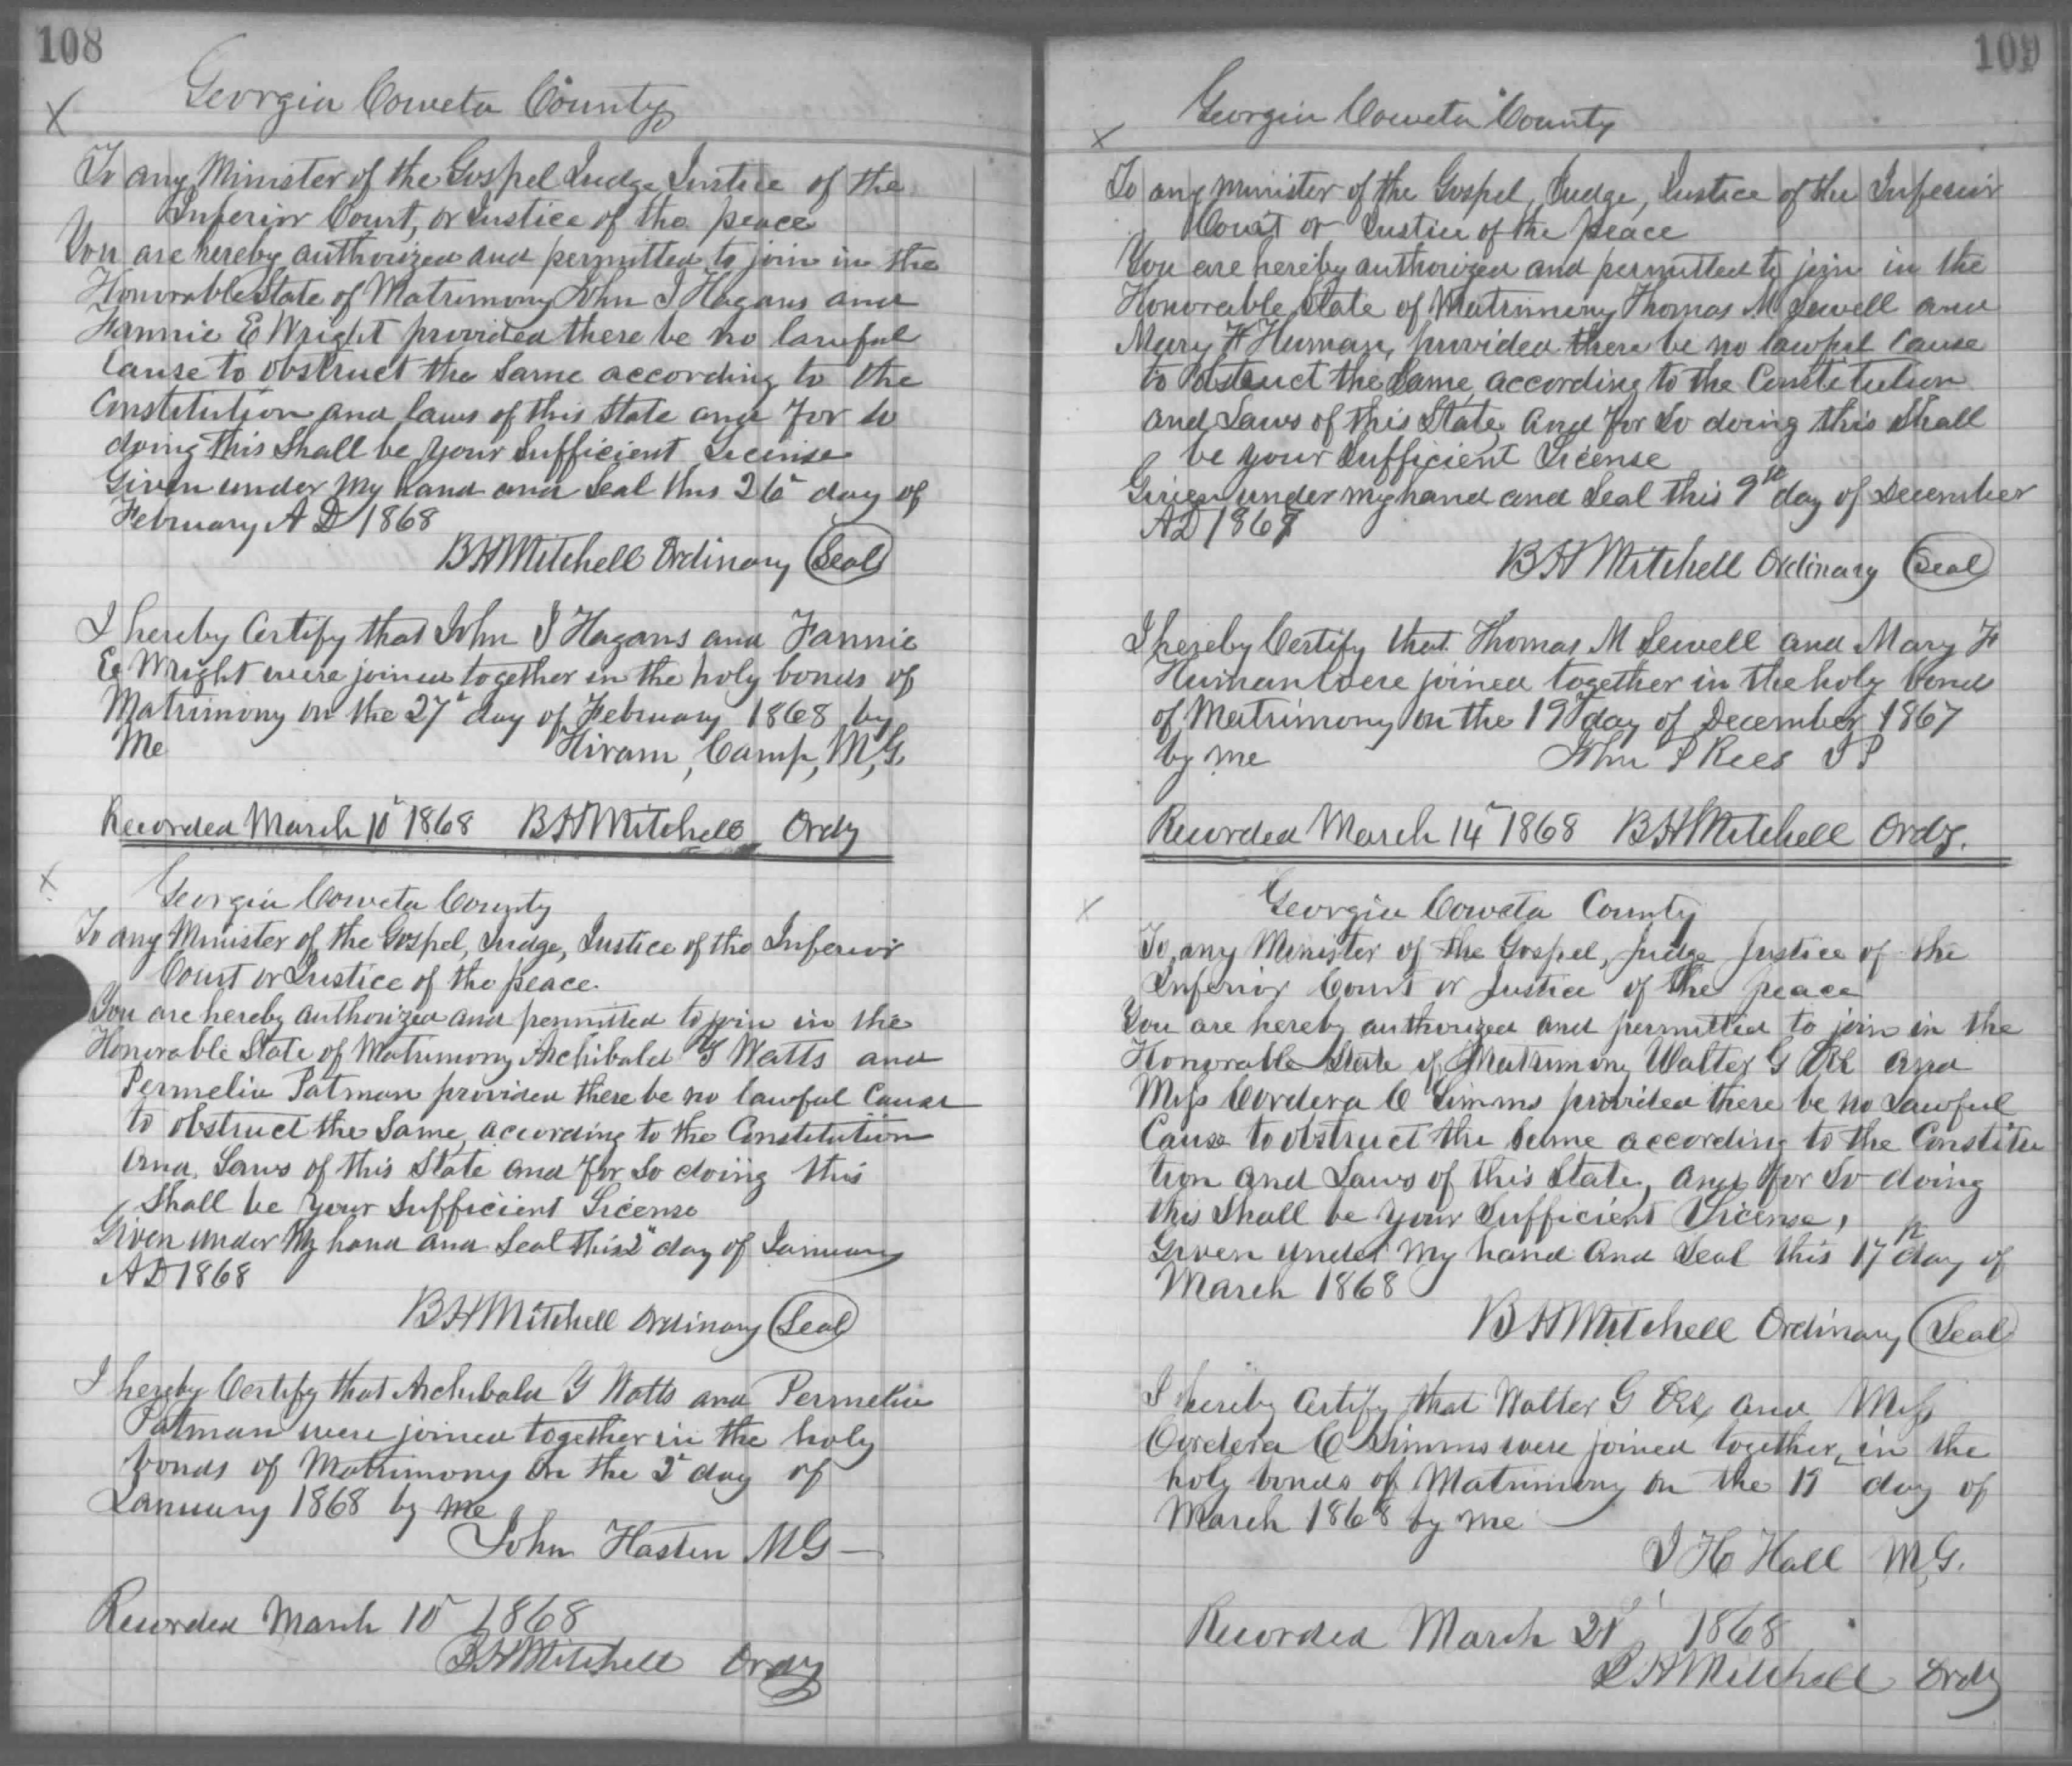 108
Georgia Coweta County
To any Minister of the Gospel Judge Justice of the
Inferior Court, or Justice of the peace
You are hereby authorized and permitted to join in the
Honorable State of Matrimony John J Hagans and
Fannie E Wright provided there be no lawful
Cause to obstruct the Same according to the
Constitution and laws of this State and for so
doing this Shall be your Sufficient License
Given under my hand and Seal this 26" day of
February A D 1868
B H Mitchell Ordinary Seal
I hereby Certify that John J Hagans and Fannie
E Wright were joined together in the holy bonds of
Matrimony on the 27" day of February 1868 by
Me Hiram, Camp, M,G.
Recorded March 10" 1868 B H Mitchell Ordy
Georgia Coweta County
To any Minister of the Gospel, Judge, Justice of the Inferior
Court or Justice of the peace.
You are hereby authorized and permitted to join in the
Honorable State of Matrimony Archibald G Watts and
Permelia Patman provided there be no lawful Cause
to obstruct the Same, according to the Constitution
and Laws of this State and for So doing this
Shall be your Sufficient License
Given under My hand and Seal this 2" day of January
A D 1868
B H Mitchell Ordinary Seal
I hereby Certify that Archibald G Watts and Permelia
Patman were joined together in the holy
bonds of Matrimony on the 2" day of
January 1868 by me
John Hasten MG
Recorded March 10" 1868
B H Mitchell Ordy
109
Georgia Coweta County
To any minister of the Gospel, Judge, Justice of the Inferior
Court or Justice of the peace
You are hereby authorized and permitted to join in the
Honorable State of Matrimony Thomas M Sewell and
Mary F Human, provided there be no lawful Cause
to obstruct the Same, according to the Constitution
and Laws of this State, and for So doing this Shall
be your Sufficient License
Given under my hand and Seal this 9th day of December
AD 1867
B H Mitchell Ordinary Seal
I hereby Certify that Thomas M Sewell and Mary F
Human were joined together in the holy bonds
of Matrimony on the 19" day of December 1867
by me John P Rees J P
Recorded March 14" 1868 B H Mitchell Ordy.
Georgia Coweta County
To, any Minister of the Gospel, Judge Justice of the
Inferior Court or Justice of the peace
You are hereby authorized and permitted to join in the
Honorable State of Matrimony Walter G and
Miss Cordera C Simms provided there be no Lawful
Cause to obstruct the Same according to the Constitu
tion and Laws of this State, and for So doing
this Shall be your Sufficient License,
Given under my hand and Seal this 17th day of
March 1868
B H Mitchell Ordinary Seal
I hereby Certify that Walter G and Miss
Cordera C Simms were joined together, in the
holy bonds of Matrimony on the 19" day of
March 1868 by me
J H Hall M,G.
Recorded March 21st 1868
B H Mitchell Ordy